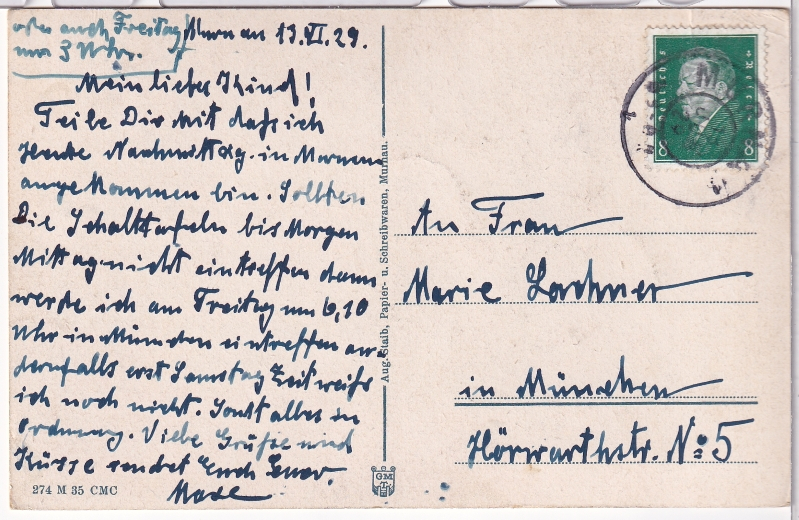 oder auch Freitag
um 3 Uhr.
Murnau 13.VI.29.
Mein liebes Kind!
Teile Dir mit dass ich
Heute Nachmittag in Murnau
angekommen bin. Sollten
Die Schalttafeln bis Morgen
Mittag nicht eintreffen dann
werde ich am Freitag um 6,10
Uhr in München eintreffen an-
dernfalls erst Samstag Zeit weiß
ich noch nicht. Sonst alles in
Ordnung. Viele Grüße und
Küsse sendet Euch Euer.
274 M 35 CMC
Aug. Staib, Papier- u. Schreibwaren, Murnau.
GM
Deutsches Reich
8 8
An Frau
Marie Lachner
in München
Hörwarthstr. No 5